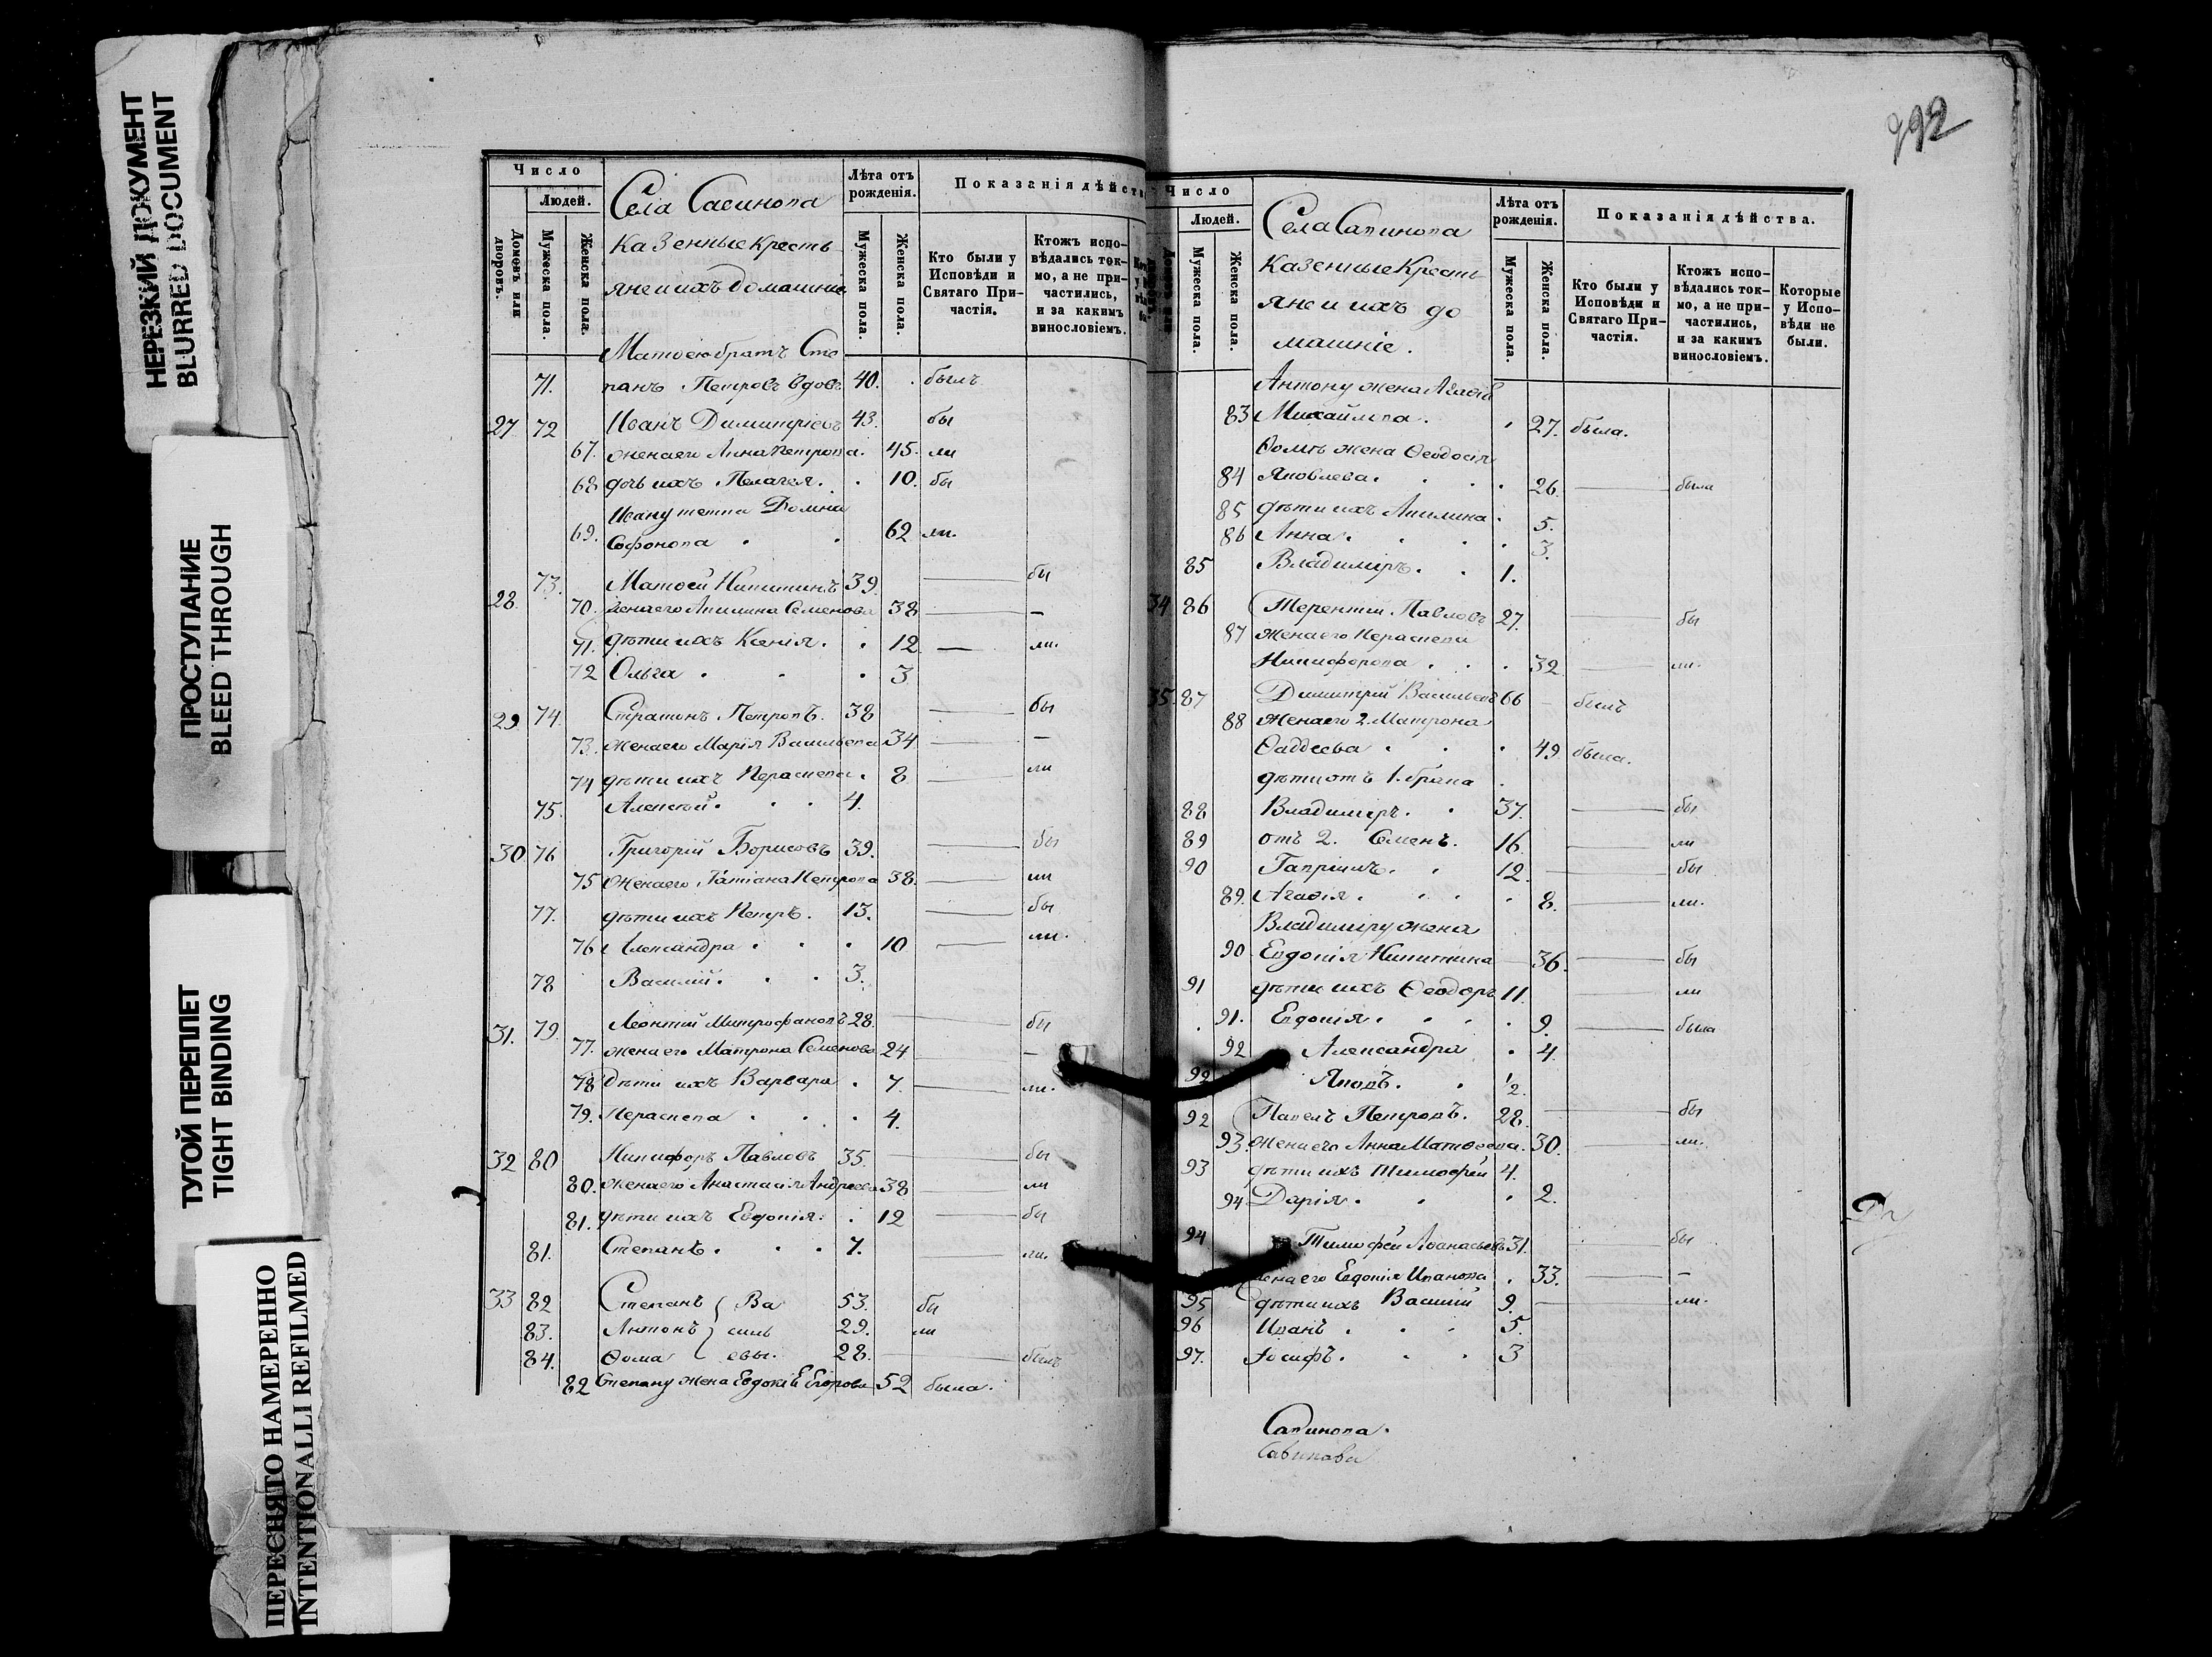 НЕРЕЗКИЙ ДОКУМЕНТ
BLURRED DOCUMENT
ПРОСТУПАНИЕ
BLEED THROUGH
ТУГОЙ ПЕРЕПЛЕТ
TIGHT BINDING
ПЕРЕСНЯТО НАМЕРЕННО
INTENTIONALLI REFILMED
Число
Людей.
Домовъ или дворовъ.
Мужеска пола.
Женска пола.
Села Савинова
казенные кресть
яне и ихъ домашніе
Лѣта отъ рожденія.
Мужеска пола.
Женска пола.
Показанія дѣйст
Кто были у Исповѣди и Святаго Причастія.
Ктожъ исповѣдались токмо, а не причастились, и за какимъ винословіемъ.
Матвею братъ Сте
71. панъ Петровъ вдовъ 40. былъ
27 72 Иванъ Димитріевъ 43. бы
67. жена его Анна Петрова. 45. ли
68 дочь ихъ Пелагея. 10. бы
Ивану тетка Домна
69. Софонова 62 ли.
28. 73. Матвей Никитинъ 39. бы
70. жена его Акилина Семенова 38 –
71. дѣти ихъ Ксенія. 12 ли.
72 Ольга 3
29 74. Стратонъ Петровъ. 38 бы
73. жена его Марія Васильева 34 –
74 дѣти ихъ Параскева. 8 ли
75. Алексѣй. 4.
30 76 Григорій Борисовъ 39. бы
75 Жена его Татіана Петрова 38. ли
77. дѣти ихъ Петръ. 13. бы
76 Александра 10 ли.
78 Василій. 3.
31. 79. Леонтій Митрофановъ 28. бы
77. жена его Матрона Семенова 24 –
78 дѣти ихъ Варвара. 7. ли.
79. Параскева 4.
32 80 Никифоръ Павловъ 35. бы
80. жена его Анастасія Андреева 38 ли
81. дѣти ихъ Евдокія. 12 бы
81. Степанъ. 7. ли.
33 82 Степанъ Ва 53. бы
83. Антонъ силь 29. ли
84. Ѳома евы. 28. былъ
82 Степану жена Евдокія Егорова 52 была.
292
Число
Людей.
Мужеска пола.
Женска пола.
Села Савинова
Казенные Кресть
яне и ихъ до
машніе.
Лѣта отъ рожденія.
Мужеска пола.
Женска пола.
Показанія дѣйства.
Кто были у Исповѣди и Святаго Причастія.
Ктожъ исповѣдались токмо, а не причастились, и за какимъ винословіемъ.
Которые у Исповѣди не были.
Антону жена
83 Михайлова. 27. была.
Ѳомѣ жена Ѳеодосія
84 Яковлева. 26. была
85 дѣти ихъ Акилина. 5.
86 Анна. 3.
85 Владиміръ. 1.
34 86 Терентій Павловъ 27. бы
87 жена его Параскева
Никифорова. 32 ли.
35. 87 Димитрій Васильевъ 66 былъ
88 жена его 2. Матрона
Ѳаддеева 49 была.
дѣти отъ 1. брака
88 Владиміръ. 37. бы
89 отъ 2. Семенъ. 16. ли
90 Гавріилъ. 12. бы
89. Агафія. 8. ли.
Владиміру жена
90 Евдокія Никитина 36. бы
91 дѣти ихъ Ѳеодоръ 11. ли
91. Евдокія. 9. была
92 Александра 4.
92 Яковъ. 1/2.
92 Павелъ Петровъ. 28. бы
93. Жена его Анна Матвеева. 30. ли.
93 дѣти ихъ Тимофей 4.
94 Дарія. 2.
94 Тимофей Аѳанасьевъ 31. бы
жена его Евдокія Иванова 33. –
95 дѣти ихъ Василій 9. ли.
96 Иванъ. 5.
97. Іосифъ. 3
Савинова.
Савинова